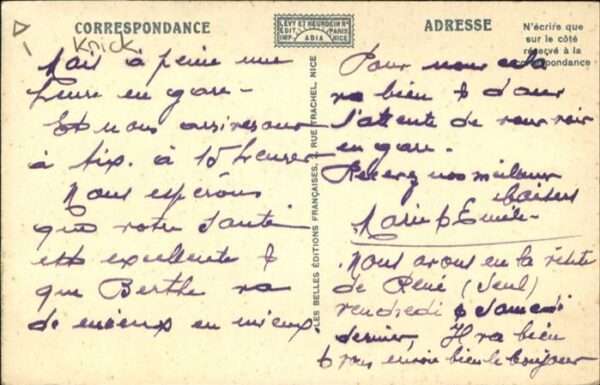 CORRESPONDANCE
LÉVY ET NEURDEIN RÉUNIS
ÉDIT. PARIS
IMP. ADIA NICE
ADRESSE
N'écrire que
sur le côté
réservé à la
correspondance
Krick
Mais à peine une
heure en gare -
Et nous arriverons
à Aix. à 15 heures
Nous espérons
que votre santé
est excellente &
que Berthe va
de mieux en mieux.
LES BELLES ÉDITIONS FRANÇAISES, RUE TRACHEL, NICE
Pour nous cela
va bien & dans
l'attente de vous voir
en gare.
Recevez nos meilleurs
baisers
Marie & Emile -
Nous avons eu la visite
de René (seul)
vendredi & samedi
dernier, Il va bien
& vous envoie bien le bonjour